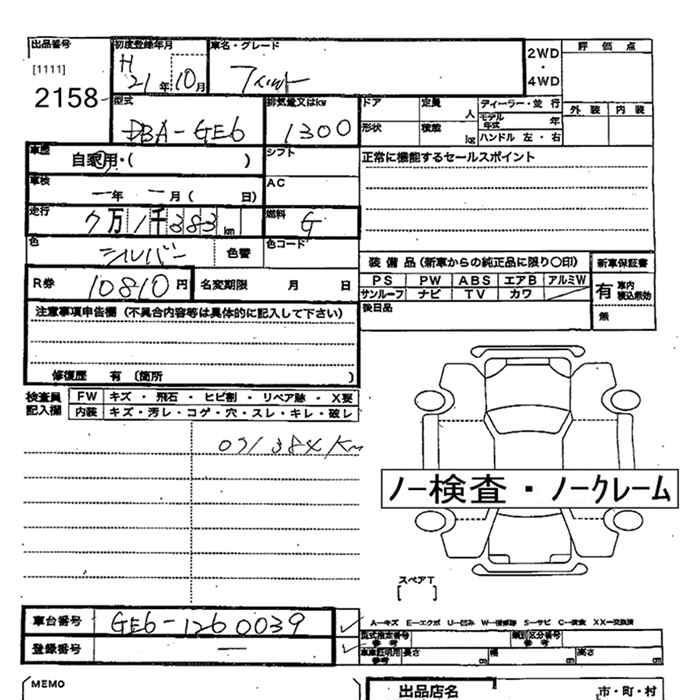 出品番号 初度登録年月 車名・グレード 2WD・4WD 評価点
[1111] H 21年10月 フィット
2158
型式 排気量又はkw ドア 定員 人 ディーラー・並行 外装 内装
DBA-GE6 1300 形状 積載 kg モデル年式 年
ハンドル 左・右
車歴 自家用・( ) シフト 正常に機能するセールスポイント
車検 一年 一月( 日) AC
走行 7万1千383km 燃料 G
色 シルバー 色替 色コード
装備品(新車からの純正品に限り〇印) 新車保証書
R券 10810円 名変期限 月 日 PS PW ABS エアB アルミW 有 車内積込無効
サンルーフ ナビ TV カワ
注意事項申告欄(不具合内容等は具体的に記入して下さい) 後日品 無
修復歴 有〔箇所 )
検査員記入欄 FW キズ・飛石・ヒビ割・リペア跡・X要
内装 キズ・汚レ・コゲ・穴・スレ・キレ・破レ
071384Km
ノー検査・ノークレーム
スペアT
[ ]
車台番号 GE6-1260039 A―キズ E―エクボ U―凹み W―補修跡 S―サビ C―腐食 XX―交換済
型式指定番号 参考 類別区分番号 参考
登録番号 ― 車庫証明用参考 長さ cm 幅 cm 高さ cm
MEMO 出品店名 市・町・村